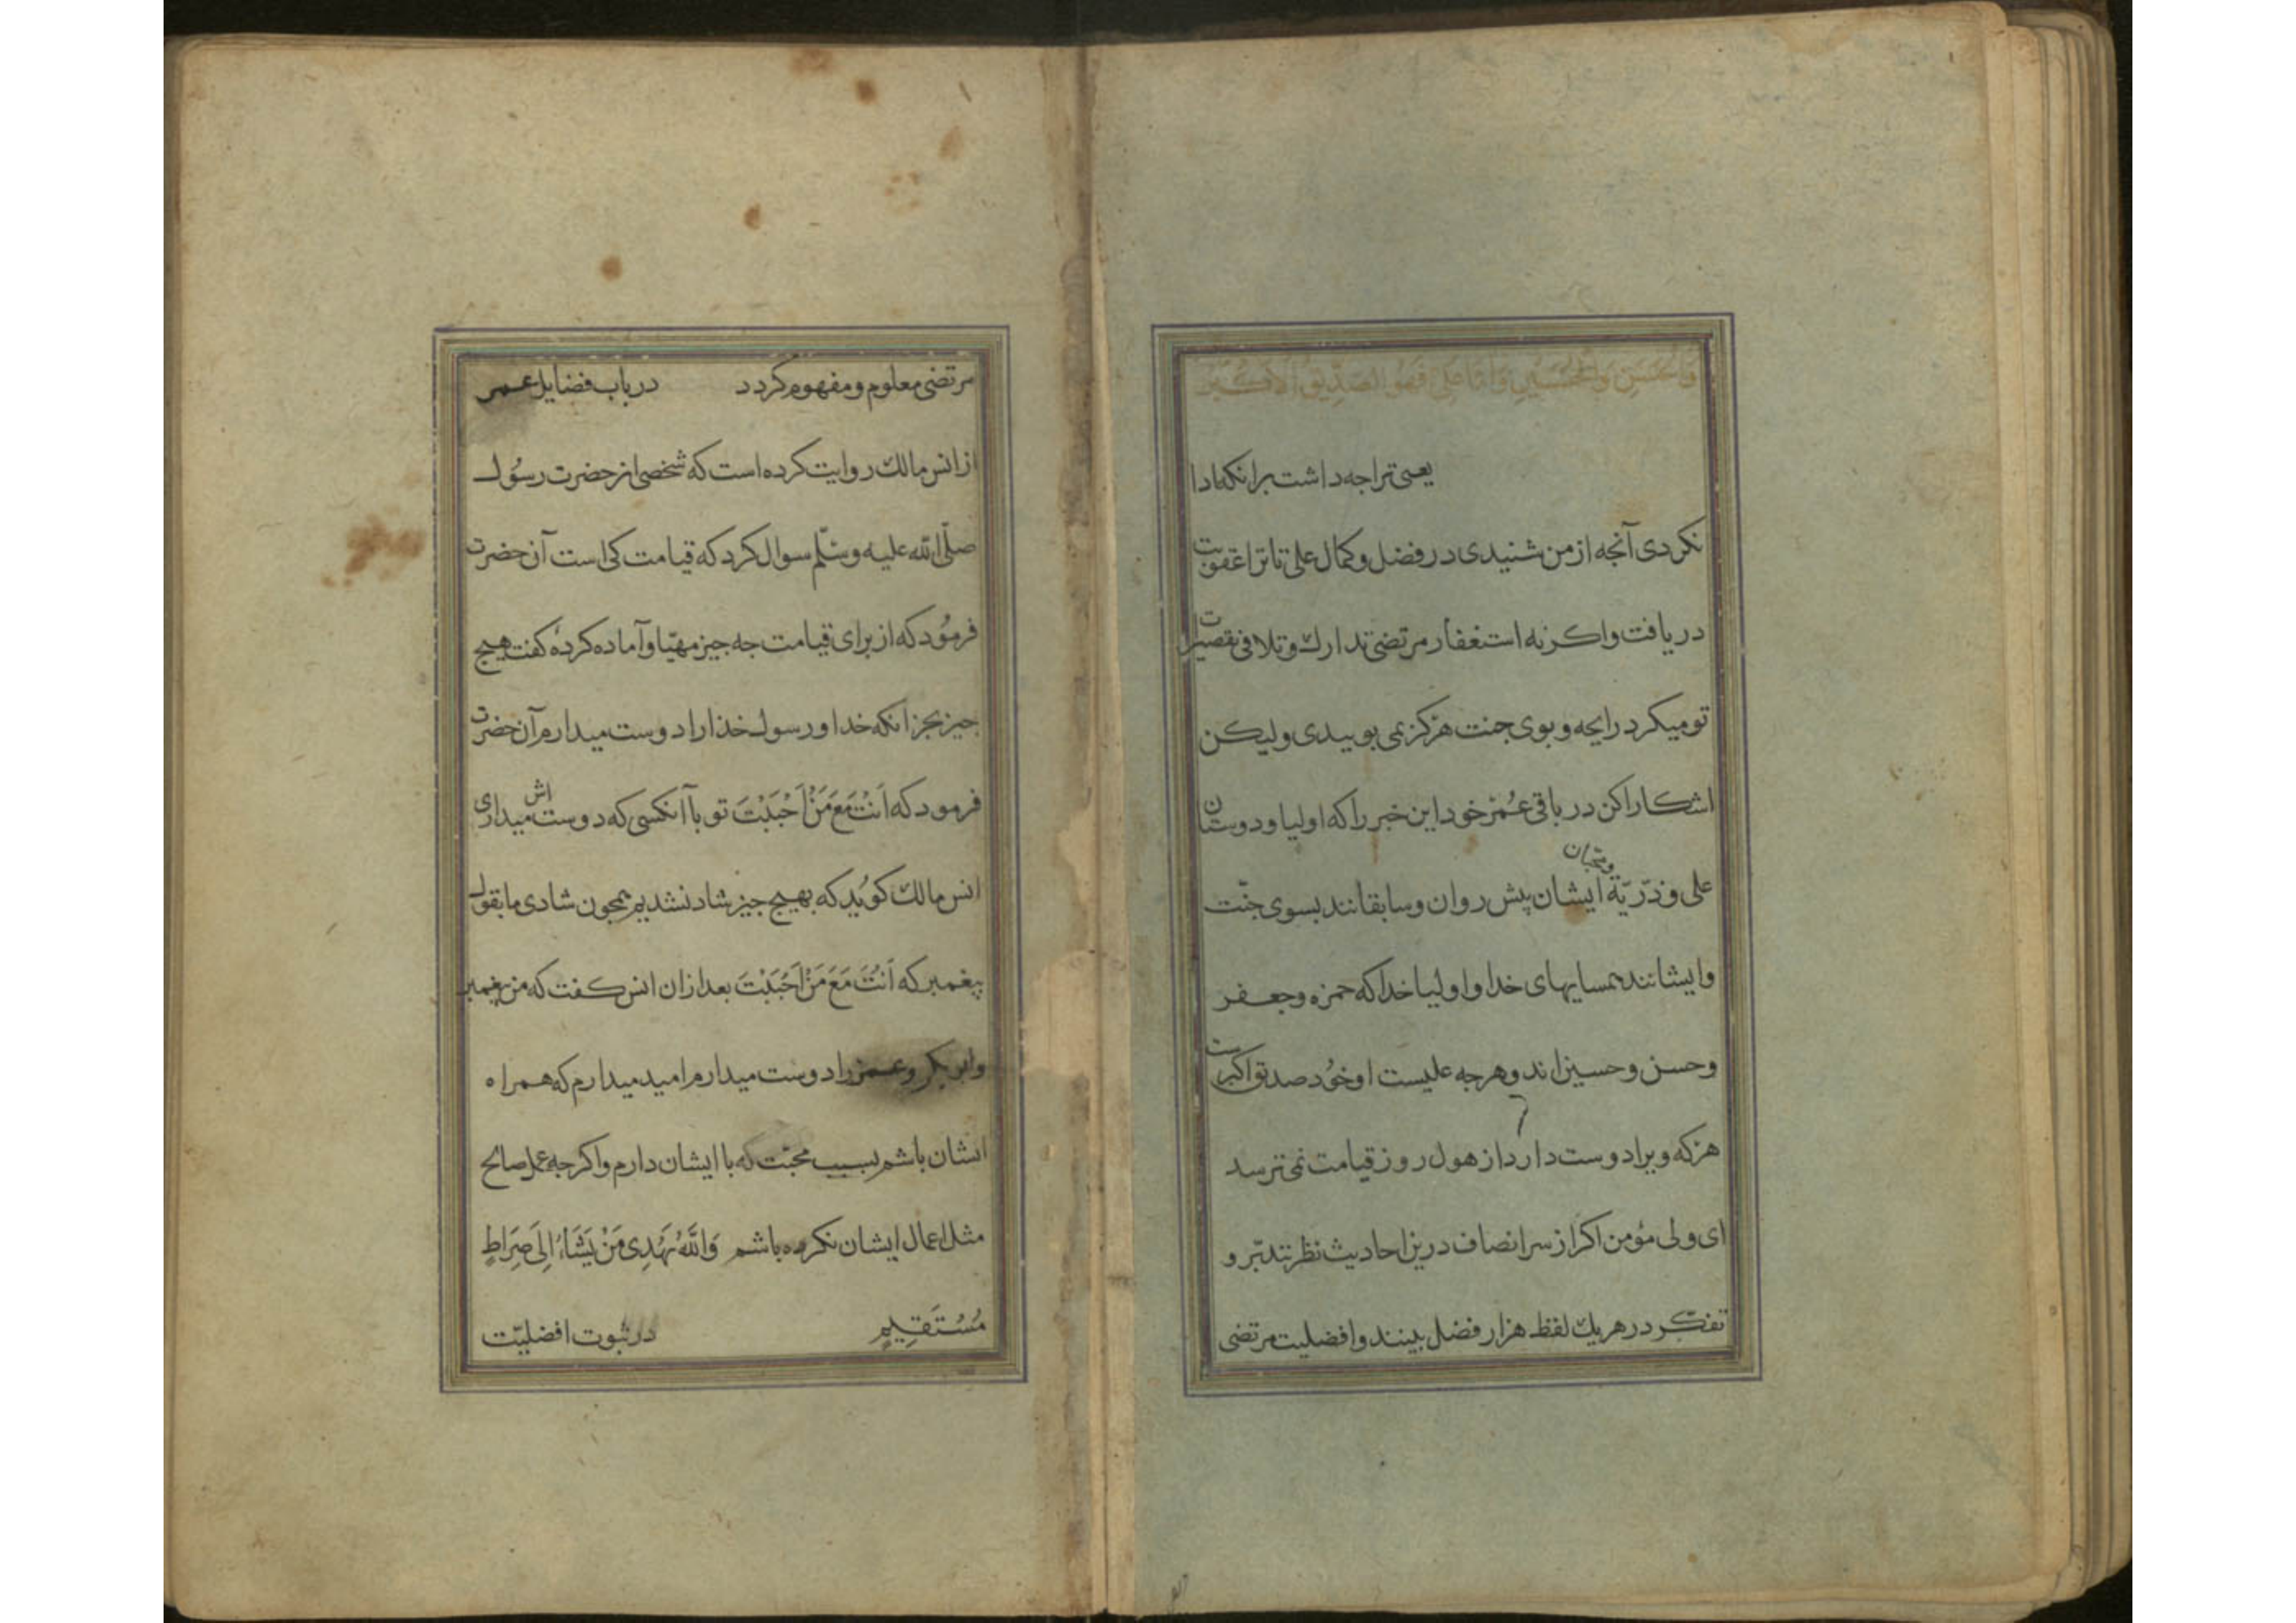 وَالْحَسَنِ وَالْحُسَيْنِ وَاَمَّا عَلِی فَهُوَ الصِّدِّيقُ الْاَكْبَرُ
يعنی ترا جه داشت برانكه ادا
نكردی آنجه از من شنيدی در فضل و كمال علی تا ترا عقوبت
دريافت واكرنه استغفار مرتضی تدارك و تلافی تقصيرات
تو ميكرد رايحه و بوی جنت هركز نمی بوييدی وليكن
اشكارا كن در باقی عُمر خود اين خبر را كه اوليا و دوستان
و محبان
علی و ذرّيّة ايشان پيش روان و سابقانند بسوی جنّت
وايشانند همسايهای خدا و اوليا خدا كه حمزه و جعفر
وحسن وحسين اند وهرجه عليست او خُود صديق اكبرست
هركه ويرا دوست دارد از هول روز قيامت نمی ترسد
ای ولی مؤمن اكر از سر انصاف درين احاديث نظر بتدبّر و
تفكّر در هريك لفظ هزار فضل بينند وافضليت مرتضی
مرتضی معلوم و مفهوم كردد در باب فضايل عمر
از انس مالك روايت كرده است كه شخصی از حضرت رسُول
صلّی الله عليه وسلّم سوال كرد كه قيامت كی است آن حضرت
فرمُود كه از برای قيامت جه جيز مهيّا و آماده كردهٔ كفت هيج
جيز بجز انكه خدا و رسول خدا را دوست ميدارم آن حضرت
فرمود كه اَنْتَ مَعَ مَنْ اَحْبَبْتَ تو با آنكسی كه دوست اش ميداری
انس مالك كويُد كه بهيج جيز شاد نشديم همجون شادی ما بقول
پيغمبر كه اَنْتَ مَعَ مَنْ اَحْبَبْتَ بعد ازان انس كفت كه من پيغمبر
و ابو بكر و عمر را دوست ميدارم اميد ميدارم كه همراه
ايشان باشم بسبب محبّت كه با ايشان دارم و اكرجه عمل صالح
مثل اعمال ايشان نكرده باشم وَاللّٰهُ يَهْدِی مَنْ يَشَاءُ اِلَی صِرَاطٍ
مُسْتَقِيمٍ در ثبوت افضليّت